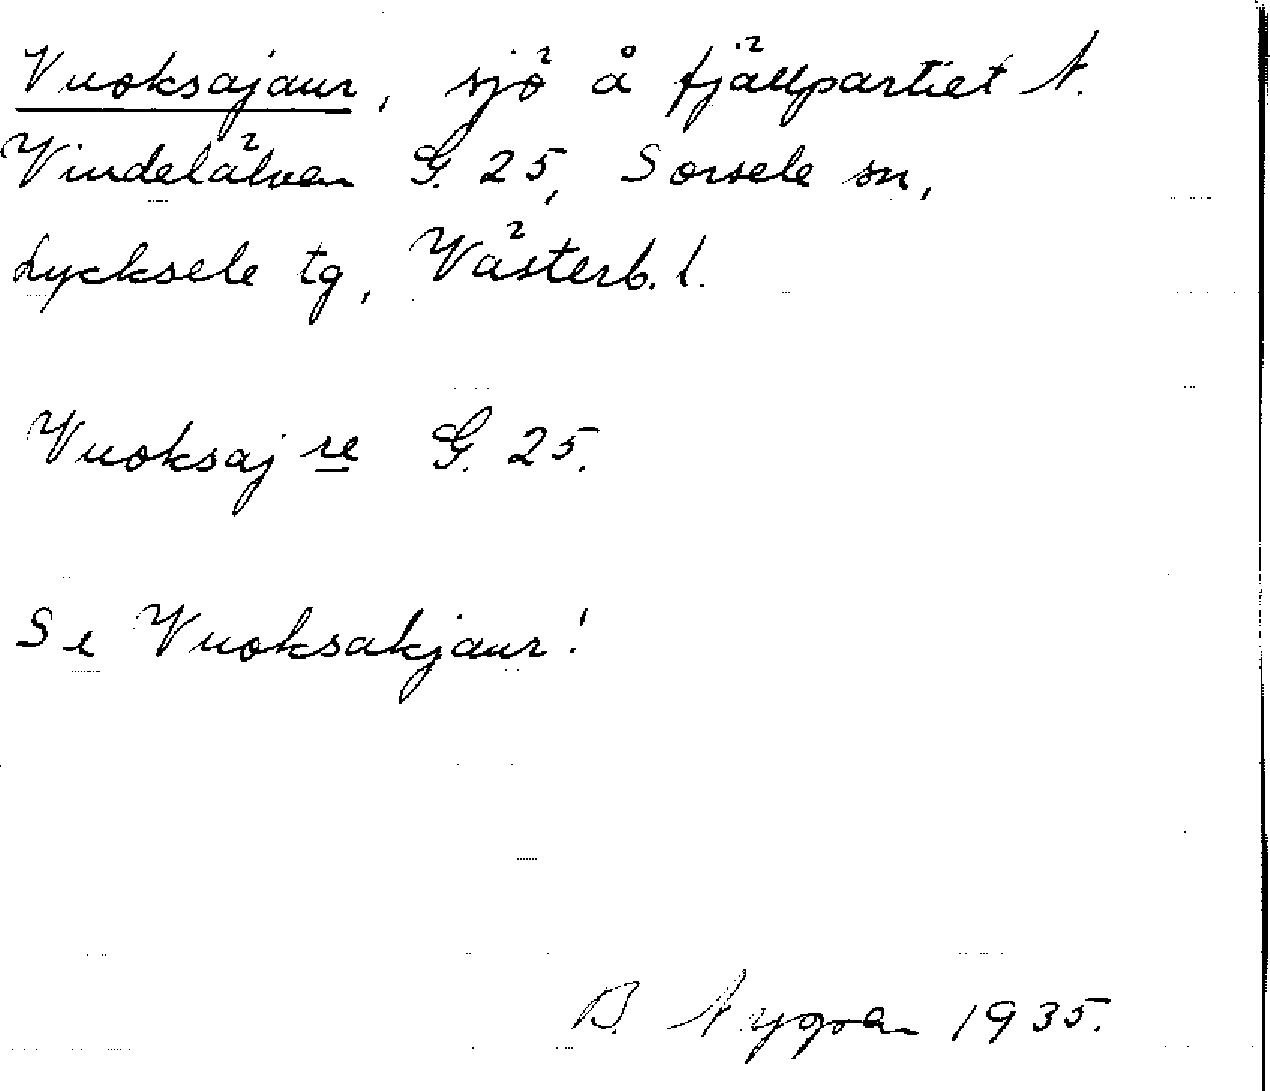 Vuoksajaur, sjö å fjällpartiet N.
Vindelälven G. 25, Sorsele sn,
Lycksele tg, Västerb. l.
Vuoksaj re G. 25.
Se Vuoksakjaur!
B. Nygren 1935.